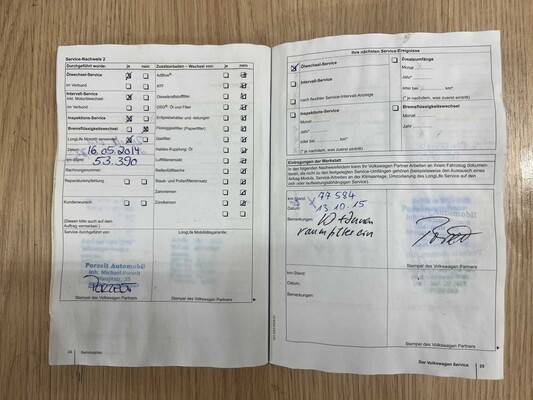 Service-Nachweis 2
Durchgeführt wurde: ja nein
Ölwechsel-Service
im Verbund
Intervall-Service
inkl. Motorölwechsel
im Verbund
Inspektions-Service
Bremsflüssigkeitswechsel
LongLife Motoröl verwendet
Datum: 16.05.2014
km-Stand: 53.390
Rechnungsnummer:
Reparaturempfehlung
Kundenwunsch
(Diesen bitte auch auf dem
Auftrag vermerken.)
Service durchgeführt von:
Porzelt Automobil
Inh. Michael Porzelt
Stempel des Volkswagen Partners
24 Serviceplan
Zusatzarbeiten – Wechsel von: ja nein
AdBlue®
ATF
Dieselkraftstofffilter
DSG® Öl und Filter
Haldex-Kupplung: Öl
Luftfiltereinsatz
Reifenfüllflasche
Staub- und Pollenfiltereinsatz
Zahnriemen
Zündkerzen
LongLife Mobilitätsgarantie:
Ihre nächsten Service-Ereignisse
Ölwechsel-Service
Intervall-Service
nach flexibler Service-Intervall-Anzeige
Inspektions-Service
Monat
Jahr*
oder bei km*
(* je nachdem, was zuerst eintritt)
Zusatzumfänge
Monat
Jahr*
oder bei km*
(* je nachdem, was zuerst eintritt)
Bremsflüssigkeitswechsel
Monat
Jahr
Eintragungen der Werkstatt
In den folgenden Nachweisfeldern kann Ihr Volkswagen Partner Arbeiten an Ihrem Fahrzeug dokumen-
tieren, die nicht zu den festgelegten Service-Umfängen gehören (beispielsweise den Austausch eines
Airbag-Moduls, Service-Arbeiten an der Klimaanlage, Umcodierung des LongLife Service auf den
zeit- oder laufleistungsabhängigen Service).
km-Stand: 77584
Datum: 13.10.15
Bemerkungen:
Stempel des Volkswagen Partners
km-Stand:
Datum:
Bemerkungen:
Stempel des Volkswagen Partners
Der Volkswagen Service 25